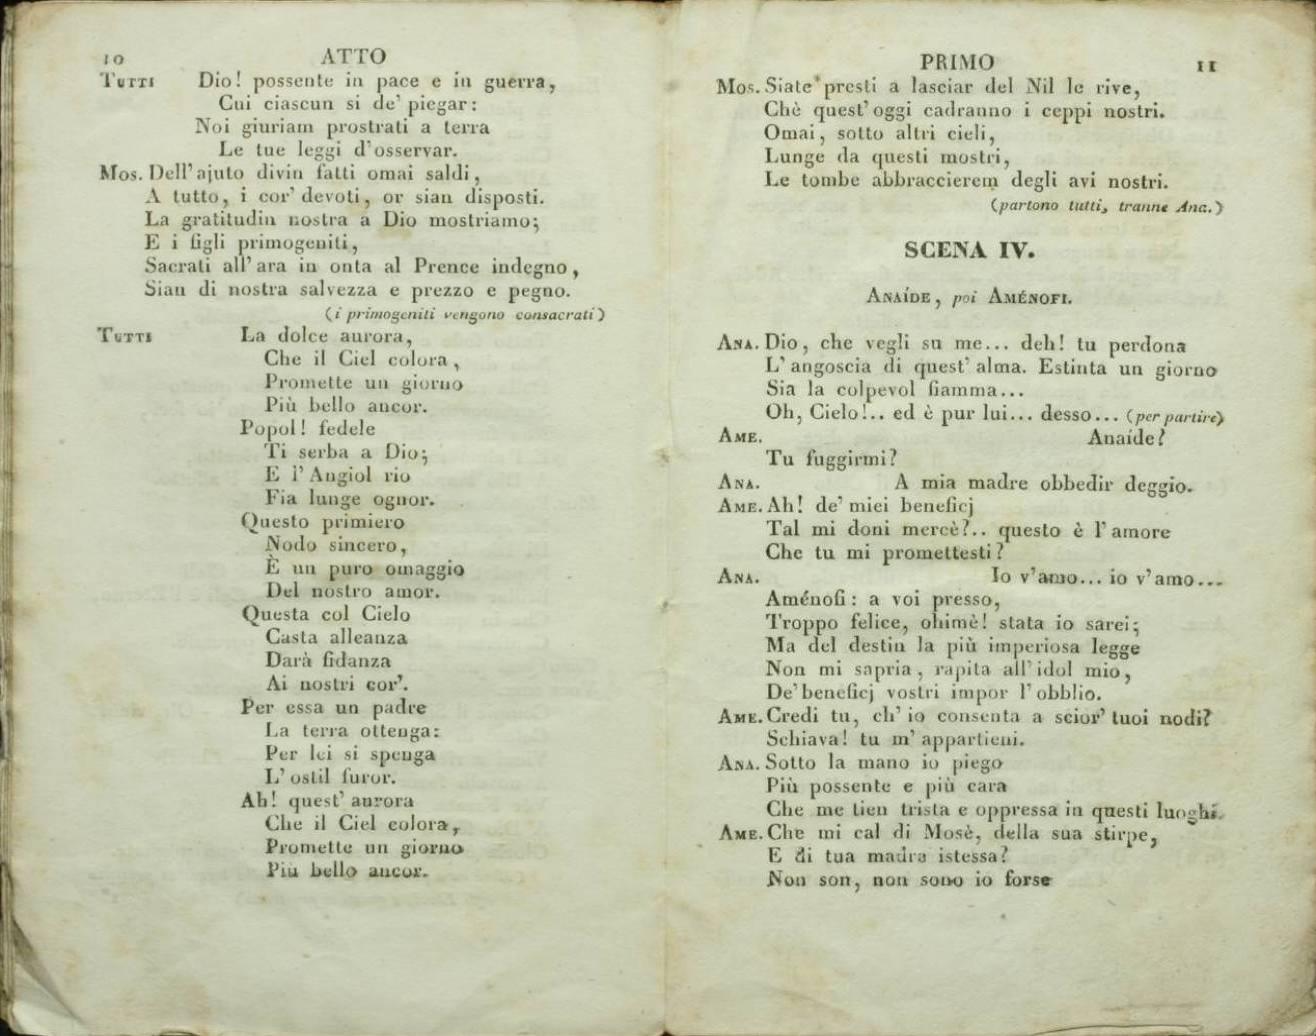 10 ATTO
TUTTI Dio! possente in pace e in guerra,
Cui ciascun si de' piegar:
Noi giuriam prostrati a terra
Le tue leggi d'osservar.
Mos. Dell'ajuto divin fatti omai saldi,
A tutto, i cor' devoti, or sian disposti.
La gratitudin nostra a Dio mostriamo;
E i figli primogeniti,
Sacrati all'ara in onta al Prence indegno,
Sian di nostra salvezza e prezzo e pegno.
(i primogeniti vengono consacrati)
TUTTI La dolce aurora,
Che il Ciel colora,
Promette un giorno
Più bello ancor.
Popol! fedele
Ti serba a Dio;
E l'Angiol rio
Fia lunge ognor.
Questo primiero
Nodo sincero,
È un puro omaggio
Del nostro amor.
Questa col Cielo
Casta alleanza
Darà fidanza
Ai nostri cor'.
Per essa un padre
La terra ottenga:
Per lei si spenga
L'ostil furor.
Ah! quest'aurora
Che il Ciel colora,
Promette un giorno
Più bello ancor.
PRIMO 11
Mos. Siate presti a lasciar del Nil le rive,
Chè quest'oggi cadranno i ceppi nostri.
Omai, sotto altri cieli,
Lunge da questi mostri,
Le tombe abbraccierem degli avi nostri.
(partono tutti, tranne Ana.)
SCENA IV.
ANAÍDE, poi AMÉNOFI.
ANA. Dio, che vegli su me... deh! tu perdona
L'angoscia di quest'alma. Estinta un giorno
Sia la colpevol fiamma...
Oh, Cielo!.. ed è pur lui... desso... (per partire)
AME. Anaíde?
Tu fuggirmi?
ANA. A mia madre obbedir deggio.
AME. Ah! de' miei beneficj
Tal mi doni mercè?.. questo è l'amore
Che tu mi promettesti?
ANA. Io v'amo... io v'amo...
Aménofi: a voi presso,
Troppo felice, ohimè! stata io sarei;
Ma del destin la più imperiosa legge
Non mi sapria, rapita all'idol mio,
De' beneficj vostri impor l'obblio.
AME. Credi tu, ch'io consenta a scior' tuoi nodi?
Schiava! tu m'appartieni.
ANA. Sotto la mano io piego
Più possente e più cara
Che me tien trista e oppressa in questi luoghi.
AME. Che mi cal di Mosè, della sua stirpe,
E di tua madre istessa?
Non son, non sono io forse